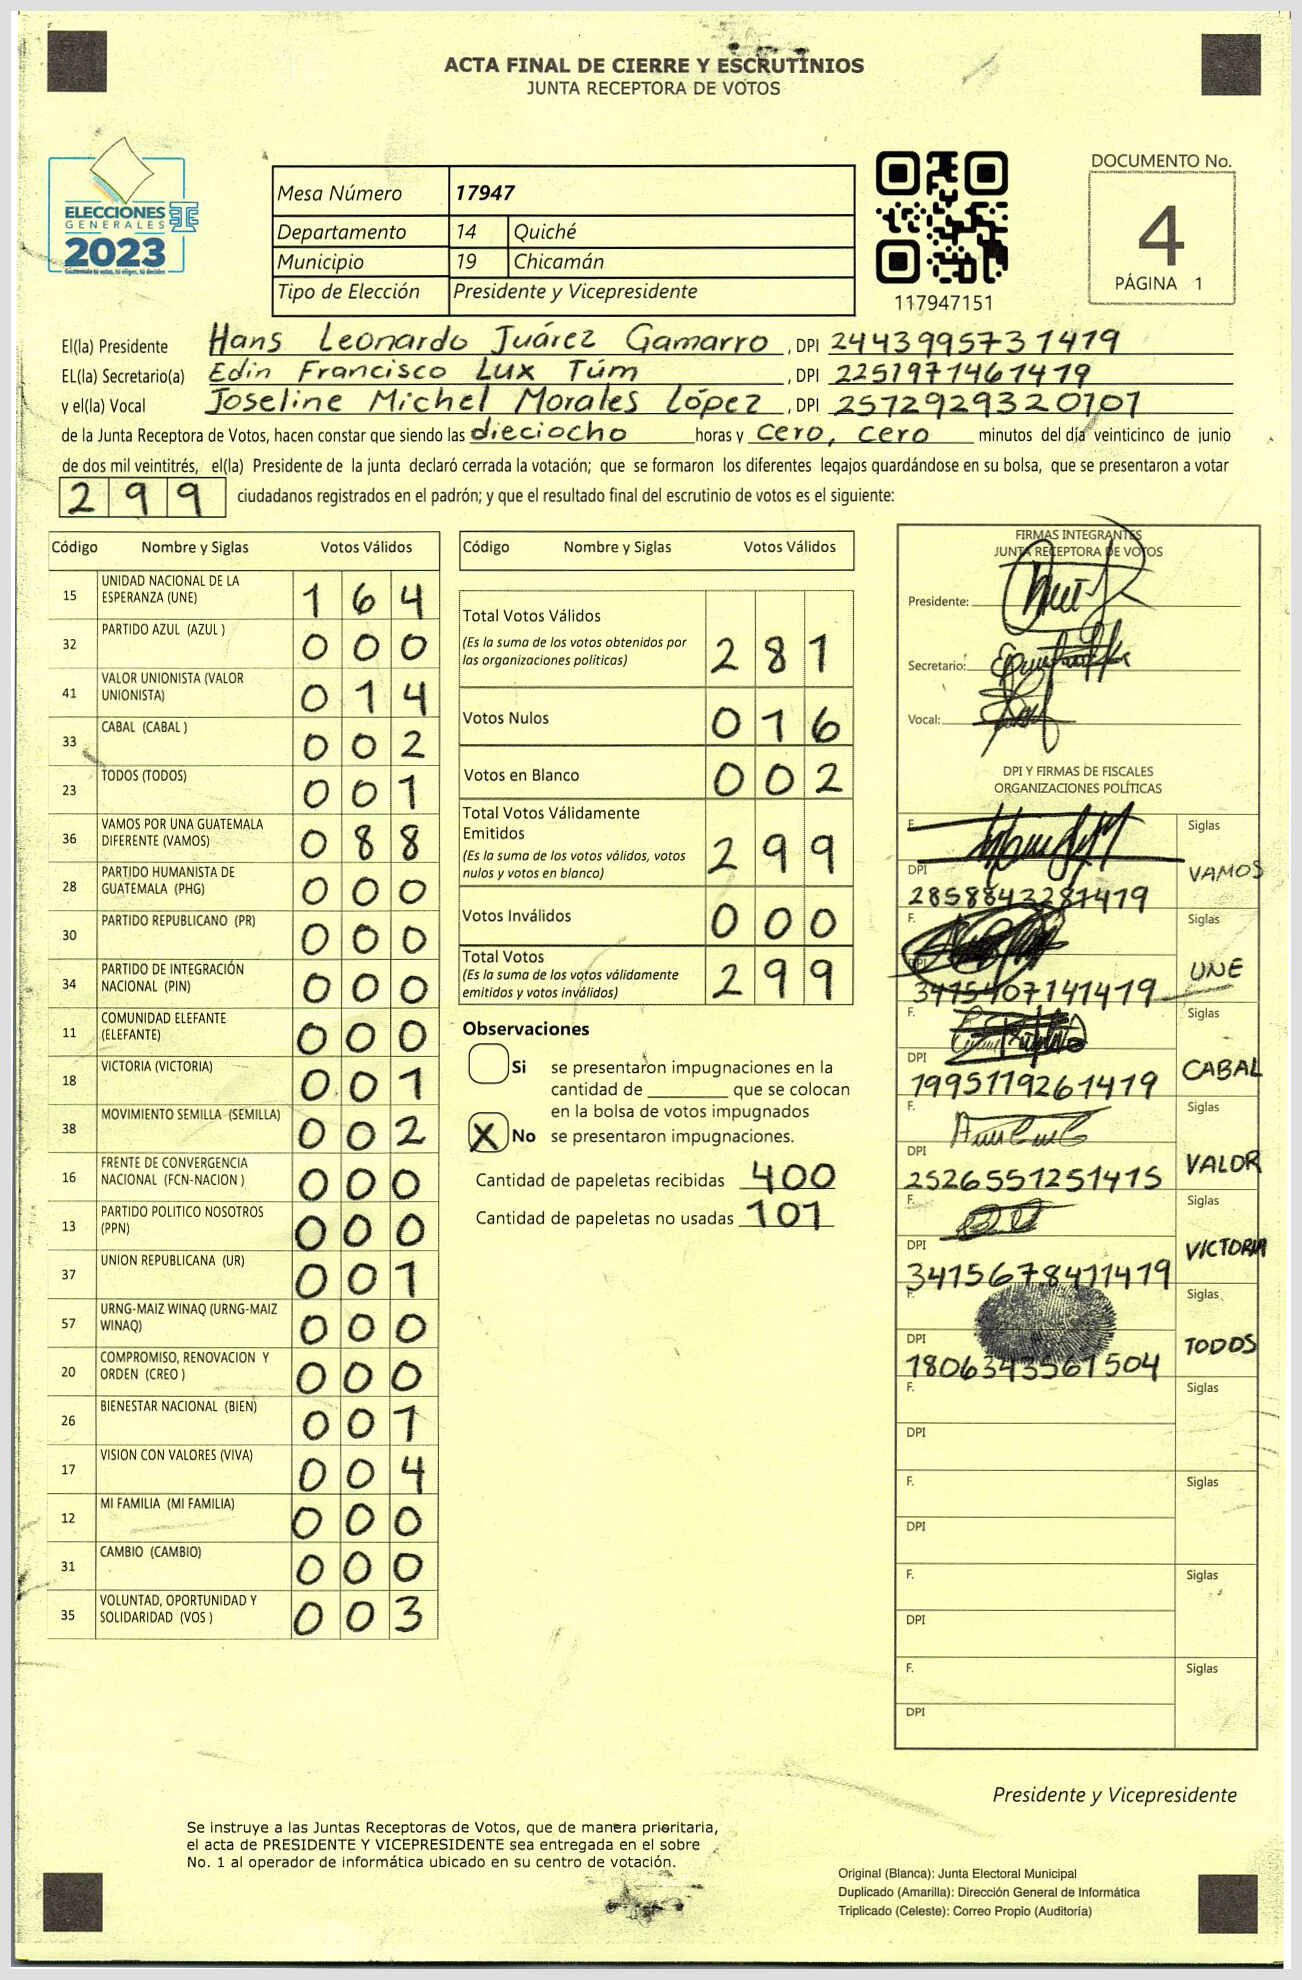 ACTA FINAL DE CIERRE Y ESCRUTINIOS
JUNTA RECEPTORA DE VOTOS
ELECCIONES
GENERALES
2023
Mesa Número 17947
Departamento 14 Quiché
Municipio 19 Chicamán
Tipo de Elección Presidente y Vicepresidente
117947151
DOCUMENTO No.
4
PÁGINA 1
El(la) Presidente Hans Leonardo Juárez Gamarro , DPI 2443995731419
EL(la) Secretario(a) Edin Francisco Lux Túm , DPI 2251971461419
y el(la) Vocal Joseline Michel Morales López , DPI 2572929320101
de la Junta Receptora de Votos, hacen constar que siendo las dieciocho horas y cero, cero minutos del día veinticinco de junio
de dos mil veintitrés, el(la) Presidente de la junta declaró cerrada la votación; que se formaron los diferentes legajos guardándose en su bolsa, que se presentaron a votar
299 ciudadanos registrados en el padrón; y que el resultado final del escrutinio de votos es el siguiente:
Código Nombre y Siglas Votos Válidos
15 UNIDAD NACIONAL DE LA ESPERANZA (UNE) 164
32 PARTIDO AZUL (AZUL ) 000
41 VALOR UNIONISTA (VALOR UNIONISTA) 014
33 CABAL (CABAL ) 002
23 TODOS (TODOS) 001
36 VAMOS POR UNA GUATEMALA DIFERENTE (VAMOS) 088
28 PARTIDO HUMANISTA DE GUATEMALA (PHG) 000
30 PARTIDO REPUBLICANO (PR) 000
34 PARTIDO DE INTEGRACIÓN NACIONAL (PIN) 000
11 COMUNIDAD ELEFANTE (ELEFANTE) 000
18 VICTORIA (VICTORIA) 001
38 MOVIMIENTO SEMILLA (SEMILLA) 002
16 FRENTE DE CONVERGENCIA NACIONAL (FCN-NACION ) 000
13 PARTIDO POLITICO NOSOTROS (PPN) 000
37 UNION REPUBLICANA (UR) 001
57 URNG-MAIZ WINAQ (URNG-MAIZ WINAQ) 000
20 COMPROMISO, RENOVACION Y ORDEN (CREO ) 000
26 BIENESTAR NACIONAL (BIEN) 001
17 VISION CON VALORES (VIVA) 004
12 MI FAMILIA (MI FAMILIA) 000
31 CAMBIO (CAMBIO) 000
35 VOLUNTAD, OPORTUNIDAD Y SOLIDARIDAD (VOS ) 003
Código Nombre y Siglas Votos Válidos
Total Votos Válidos
(Es la suma de los votos obtenidos por
las organizaciones políticas) 281
Votos Nulos 016
Votos en Blanco 002
Total Votos Válidamente
Emitidos
(Es la suma de los votos válidos, votos
nulos y votos en blanco) 299
Votos Inválidos 000
Total Votos
(Es la suma de los votos válidamente
emitidos y votos inválidos) 299
Observaciones
Si se presentaron impugnaciones en la
cantidad de ________ que se colocan
en la bolsa de votos impugnados
X No se presentaron impugnaciones.
Cantidad de papeletas recibidas 400
Cantidad de papeletas no usadas 101
FIRMAS INTEGRANTES
JUNTA RECEPTORA DE VOTOS
Presidente:
Secretario:
Vocal:
DPI Y FIRMAS DE FISCALES
ORGANIZACIONES POLÍTICAS
F. Siglas
DPI 2858843281419 VAMOS
F. Siglas
DPI 3415407141419 UNE
F. Siglas
DPI 1995119261419 CABAL
F. Siglas
DPI 2526551251415 VALOR
F. Siglas
DPI 3415678411419 VICTORIA
F. Siglas
DPI 1806343561504 TODOS
F. Siglas
DPI
F. Siglas
DPI
F. Siglas
DPI
F. Siglas
DPI
Presidente y Vicepresidente
Se instruye a las Juntas Receptoras de Votos, que de manera prioritaria,
el acta de PRESIDENTE Y VICEPRESIDENTE sea entregada en el sobre
No. 1 al operador de informática ubicado en su centro de votación.
Original (Blanca): Junta Electoral Municipal
Duplicado (Amarilla): Dirección General de Informática
Triplicado (Celeste): Correo Propio (Auditoría)